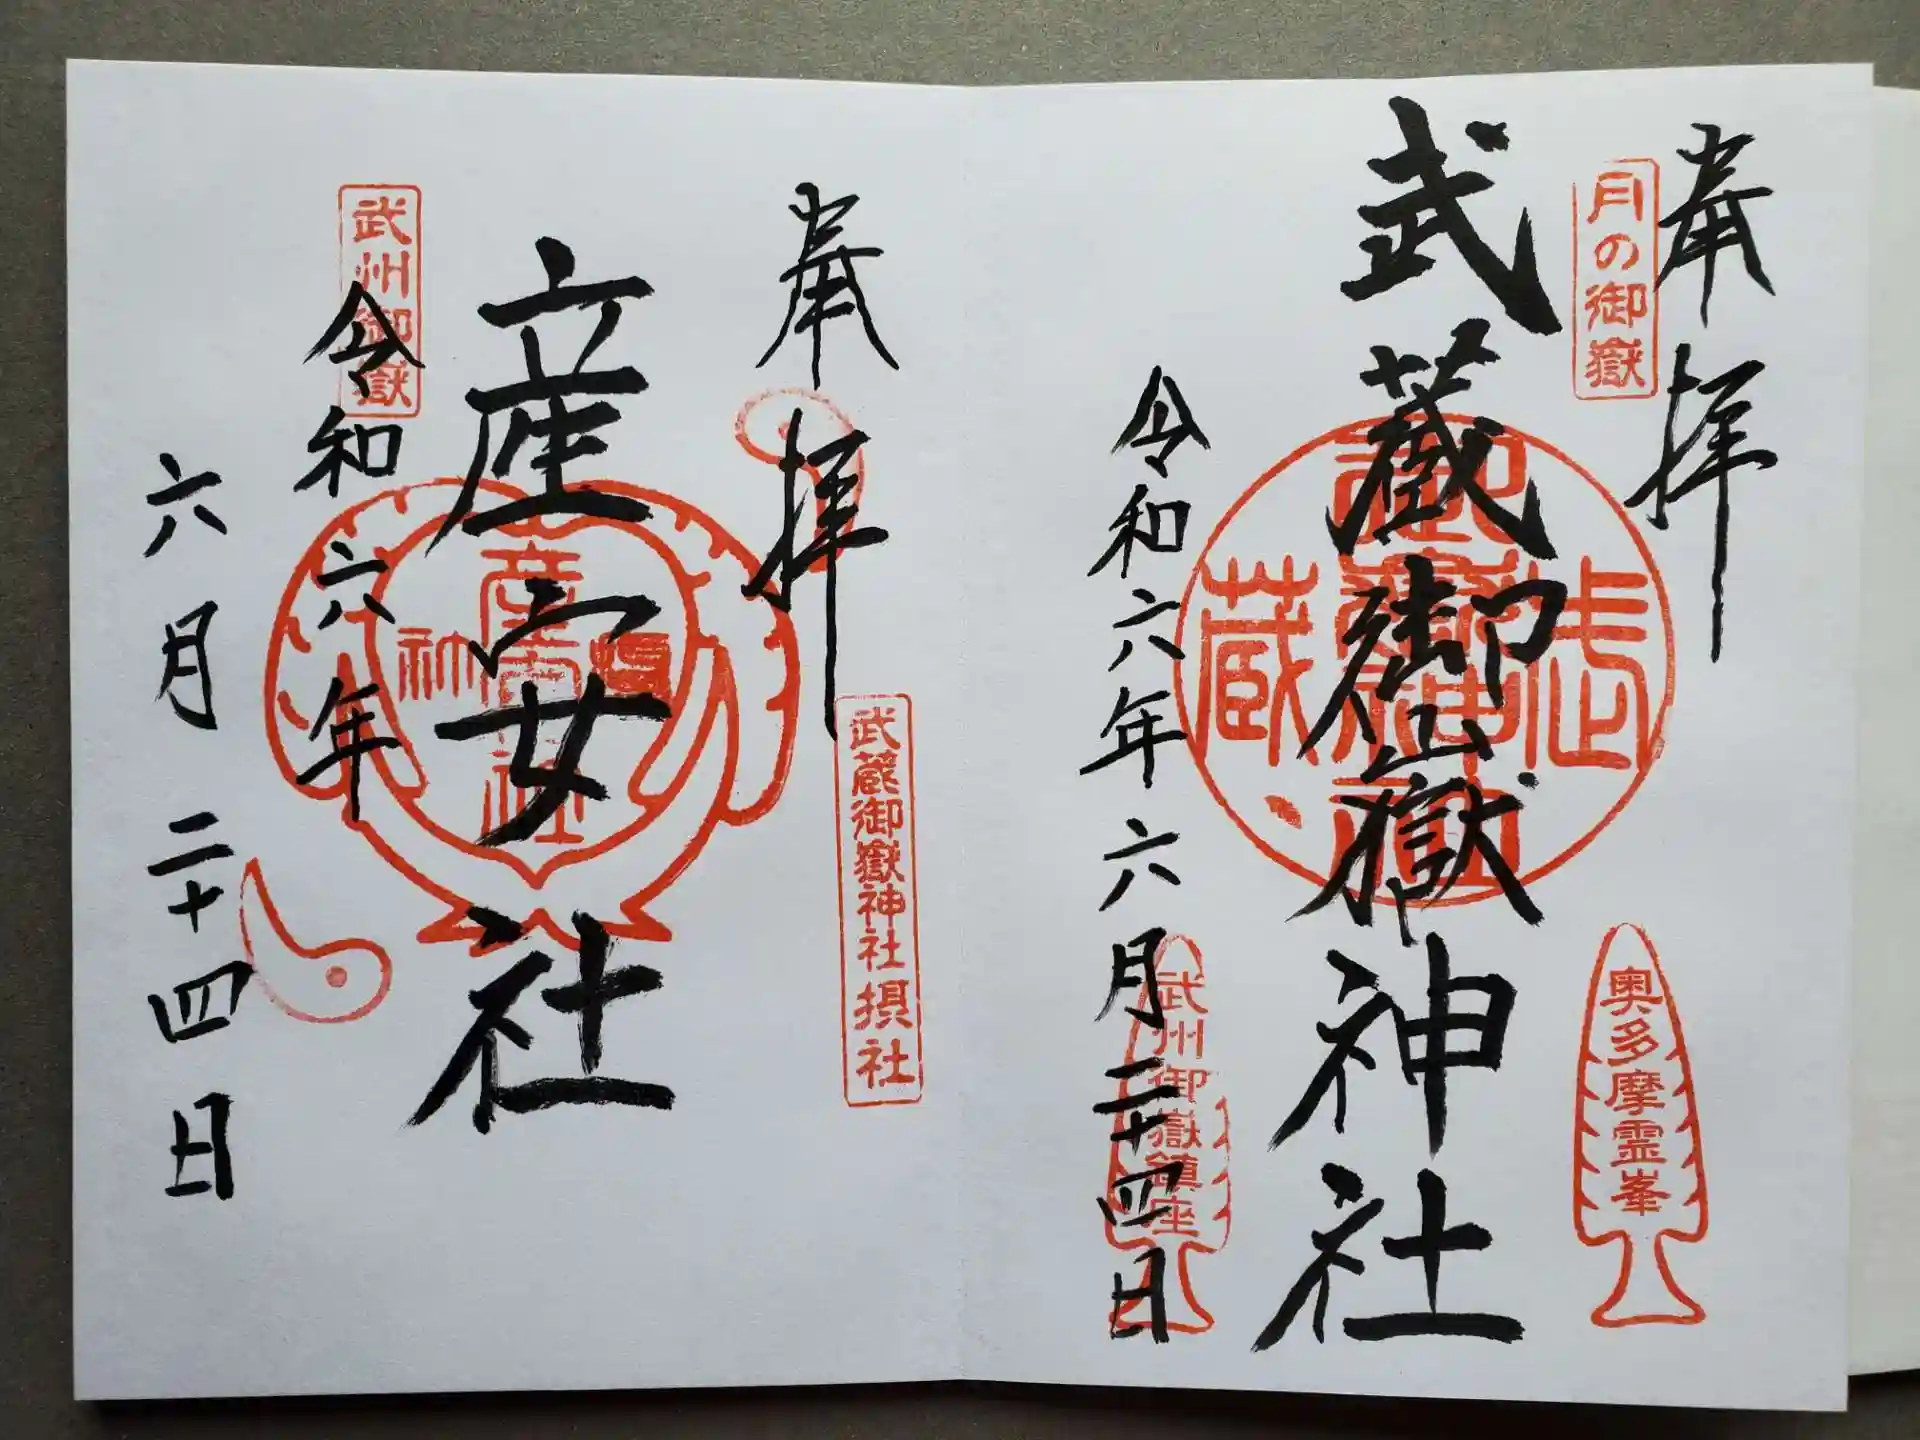 奉拝
月の御嶽
武蔵御嶽神社
奥多摩霊峯
令和六年六月二十四日
武州御嶽鎮座
奉拝
武蔵御嶽神社摂社
産安社
武州御嶽
令和六年
六月二十四日